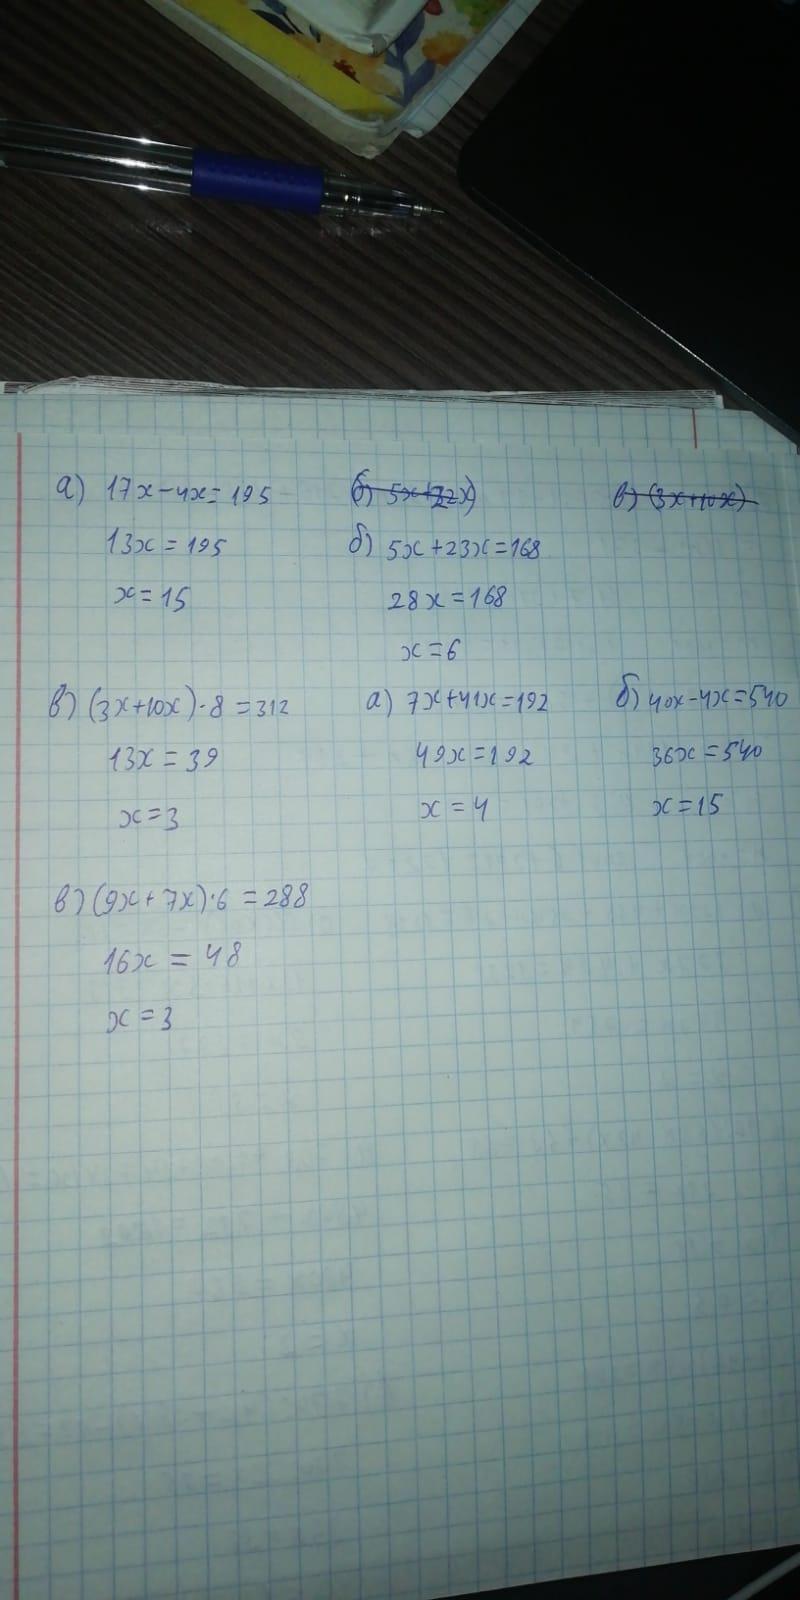 а) 17x-4x=195
13x=195
x=15
б) 5x+
б) 5x+23x=168
28x=168
x=6
в) (3x+10x)
в) (3x+10x)·8=312
13x=39
x=3
а) 7x+41x=192
49x=192
x=4
б) 40x-4x=540
36x=540
x=15
в) (9x+7x)·6=288
16x=48
x=3